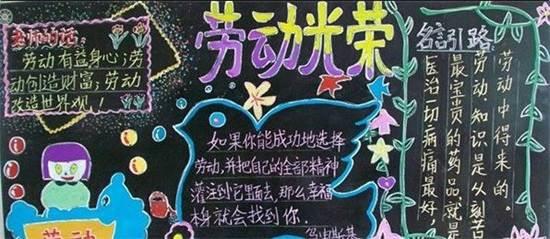 劳动光荣
老师的话:
劳动有益身心;劳
动创造财富;劳动
改造世界观!
劳动
如果你能成功地选择
劳动,并把自己的全部精神
灌注到它里面去,那么幸福
本身就会找到你.
乌申斯基
名言引路
医治一切病痛最好
最宝贵的药品就是
劳动 知识是从刻苦
劳动中得来的。